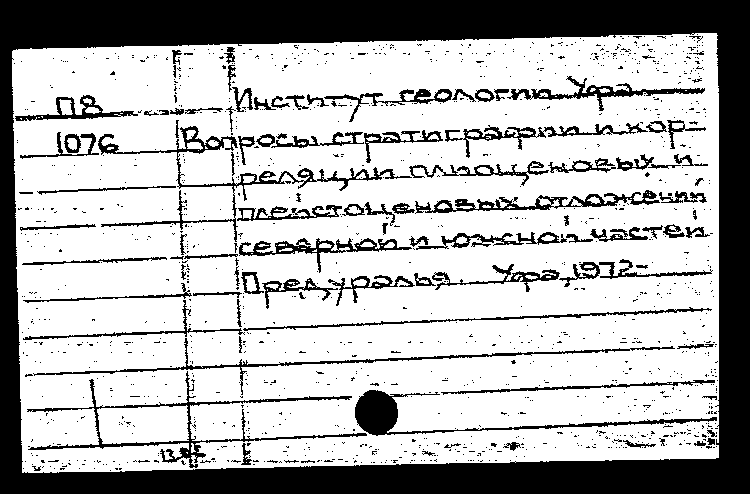 П8 Институт геологии Уфа
1076 Вопросы стратиграфии и кор-
реляции плиоценовых и
плейстоценовых отложений
северной и южной частей
Предуралья. Уфа, 1972-